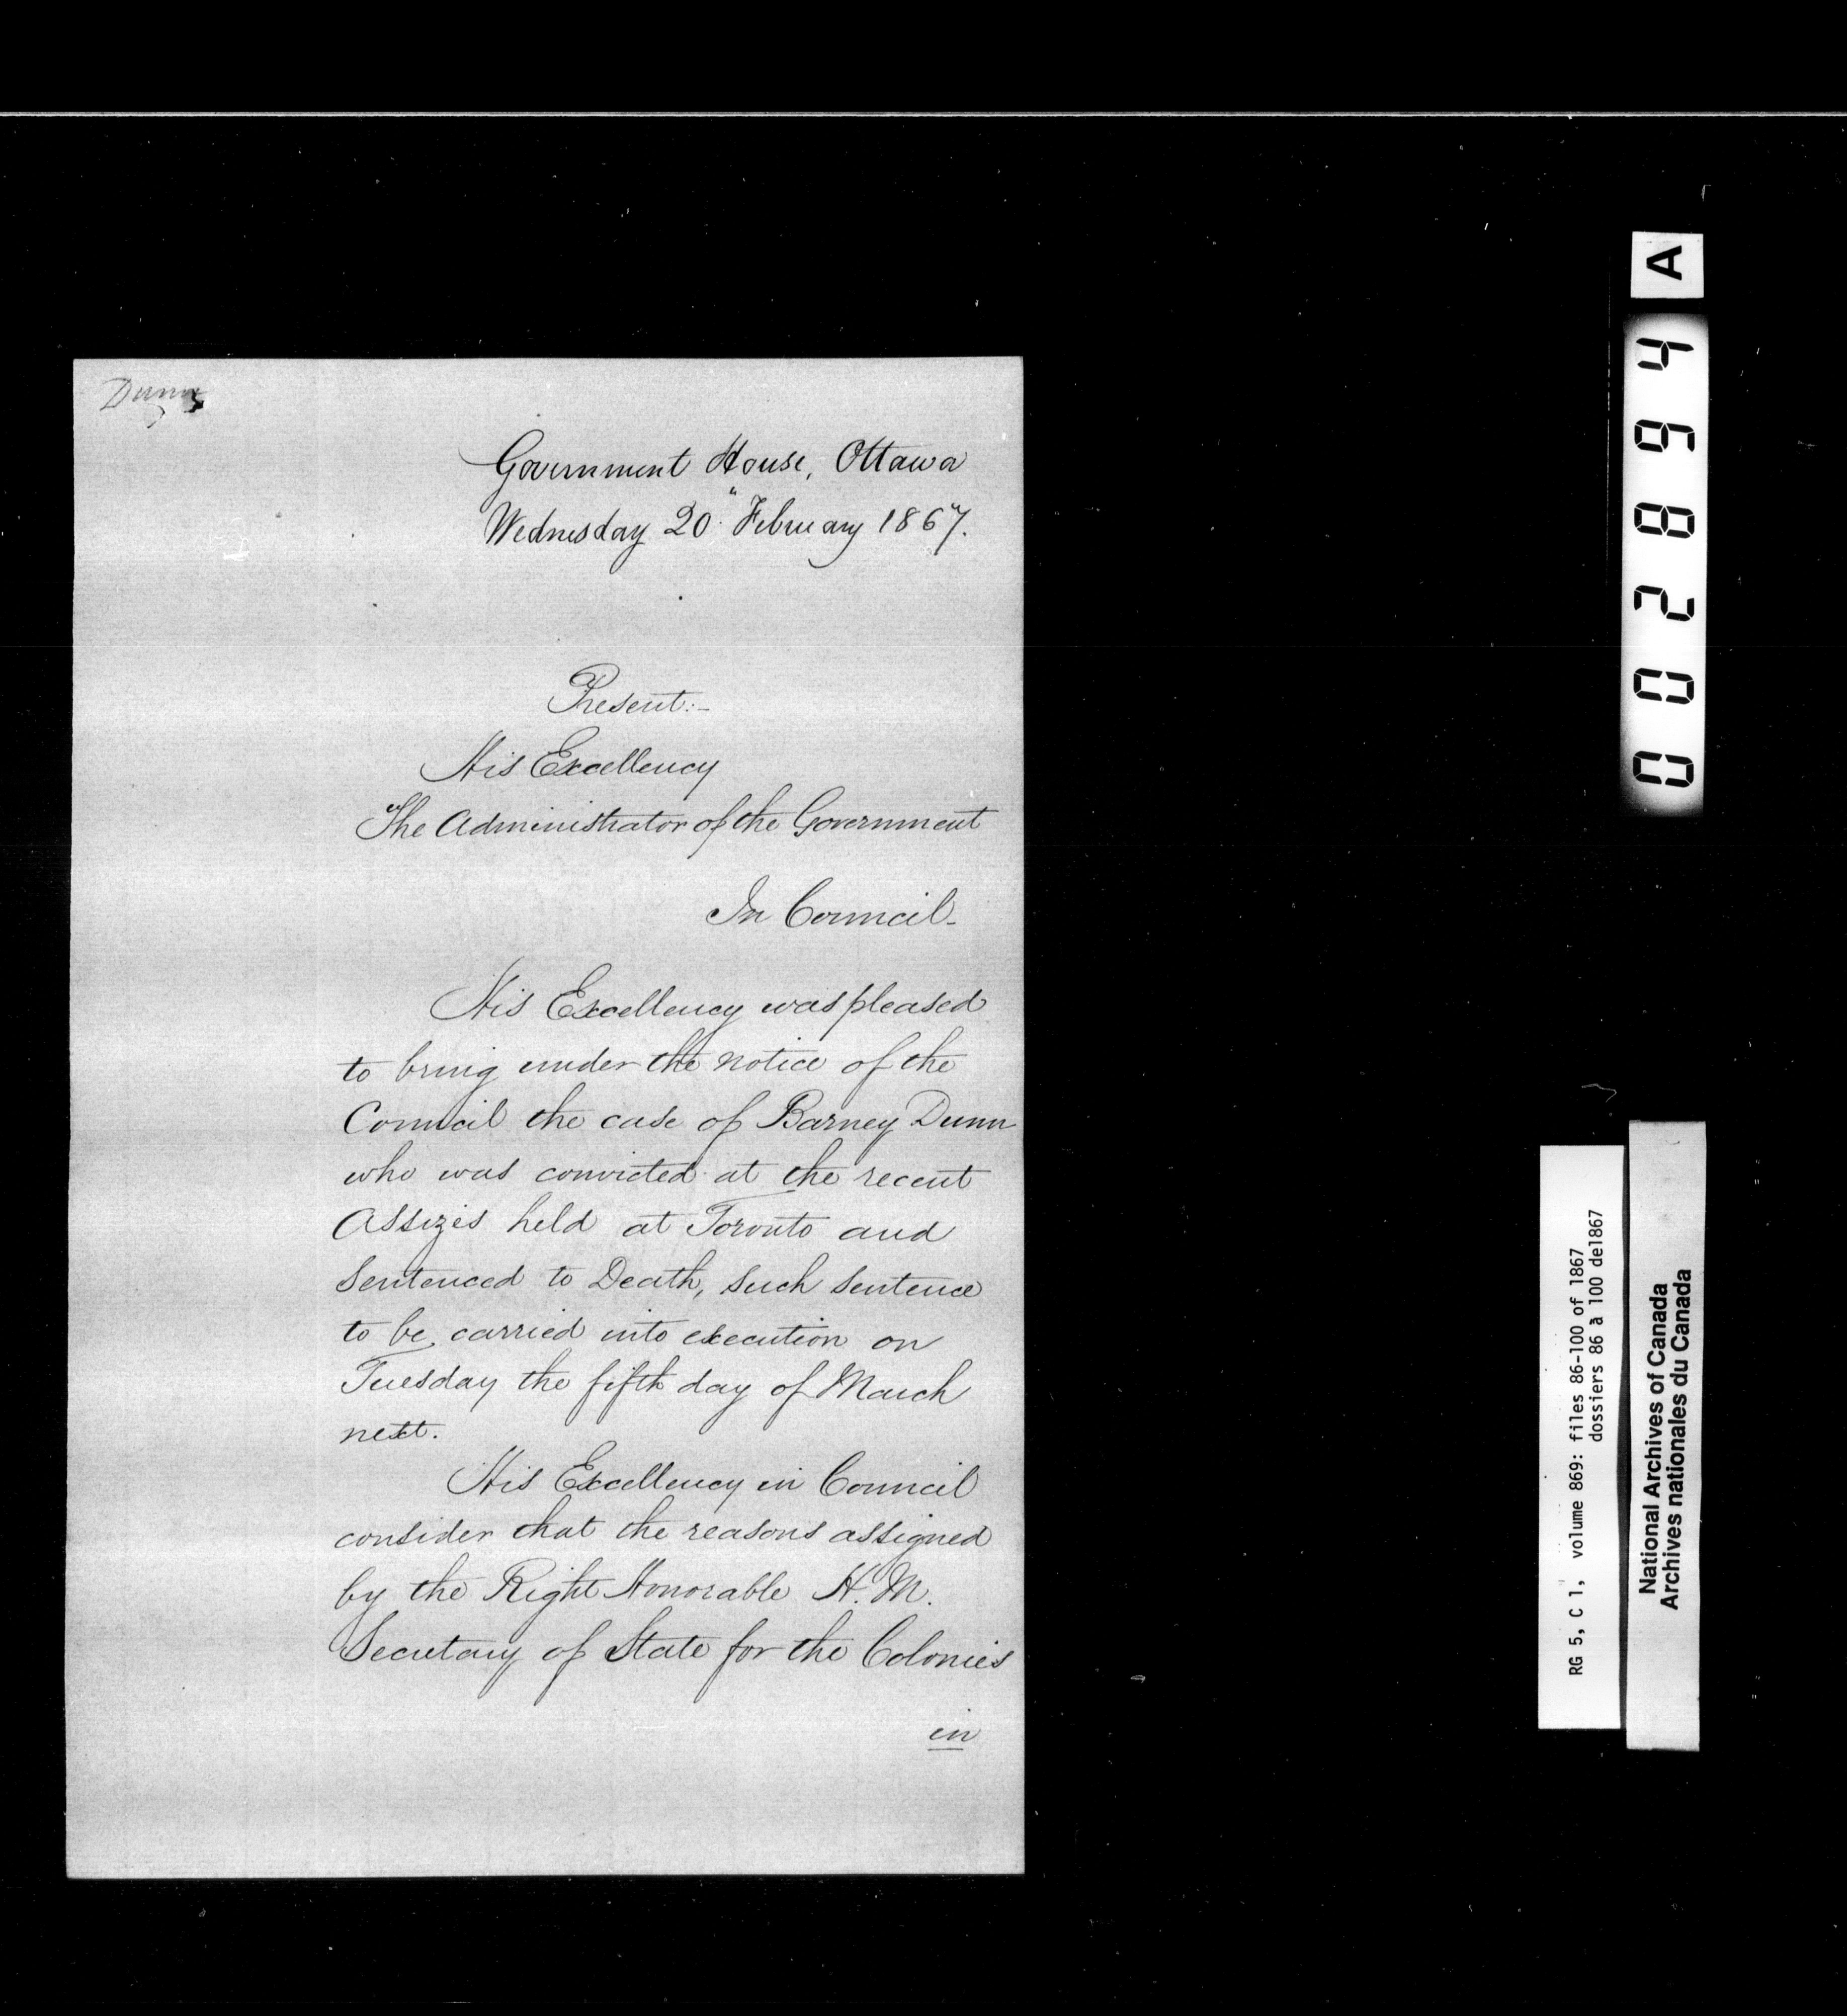 Dunn
Government House, Ottawa
Wednesday 20" February 1867.
Present:-
His Excellency
The Administrator of the Government
In Council-
His Excellency was pleased
to bring under the notice of the
Council the case of Barney Dunn
who was convicted at the recent
Assizes held at Toronto and
Sentenced to Death, such sentence
to be carried into execution on
Tuesday the fifth day of March
next.
His Excellency in Council
consider that the reasons assigned
by the Right Honorable H. M.
Secretary of State for the Colonies
in
002894 A
RG 5, C 1, volume 869: files 86-100 of 1867
dossiers 86 à 100 de1867
National Archives of Canada
Archives nationales du Canada